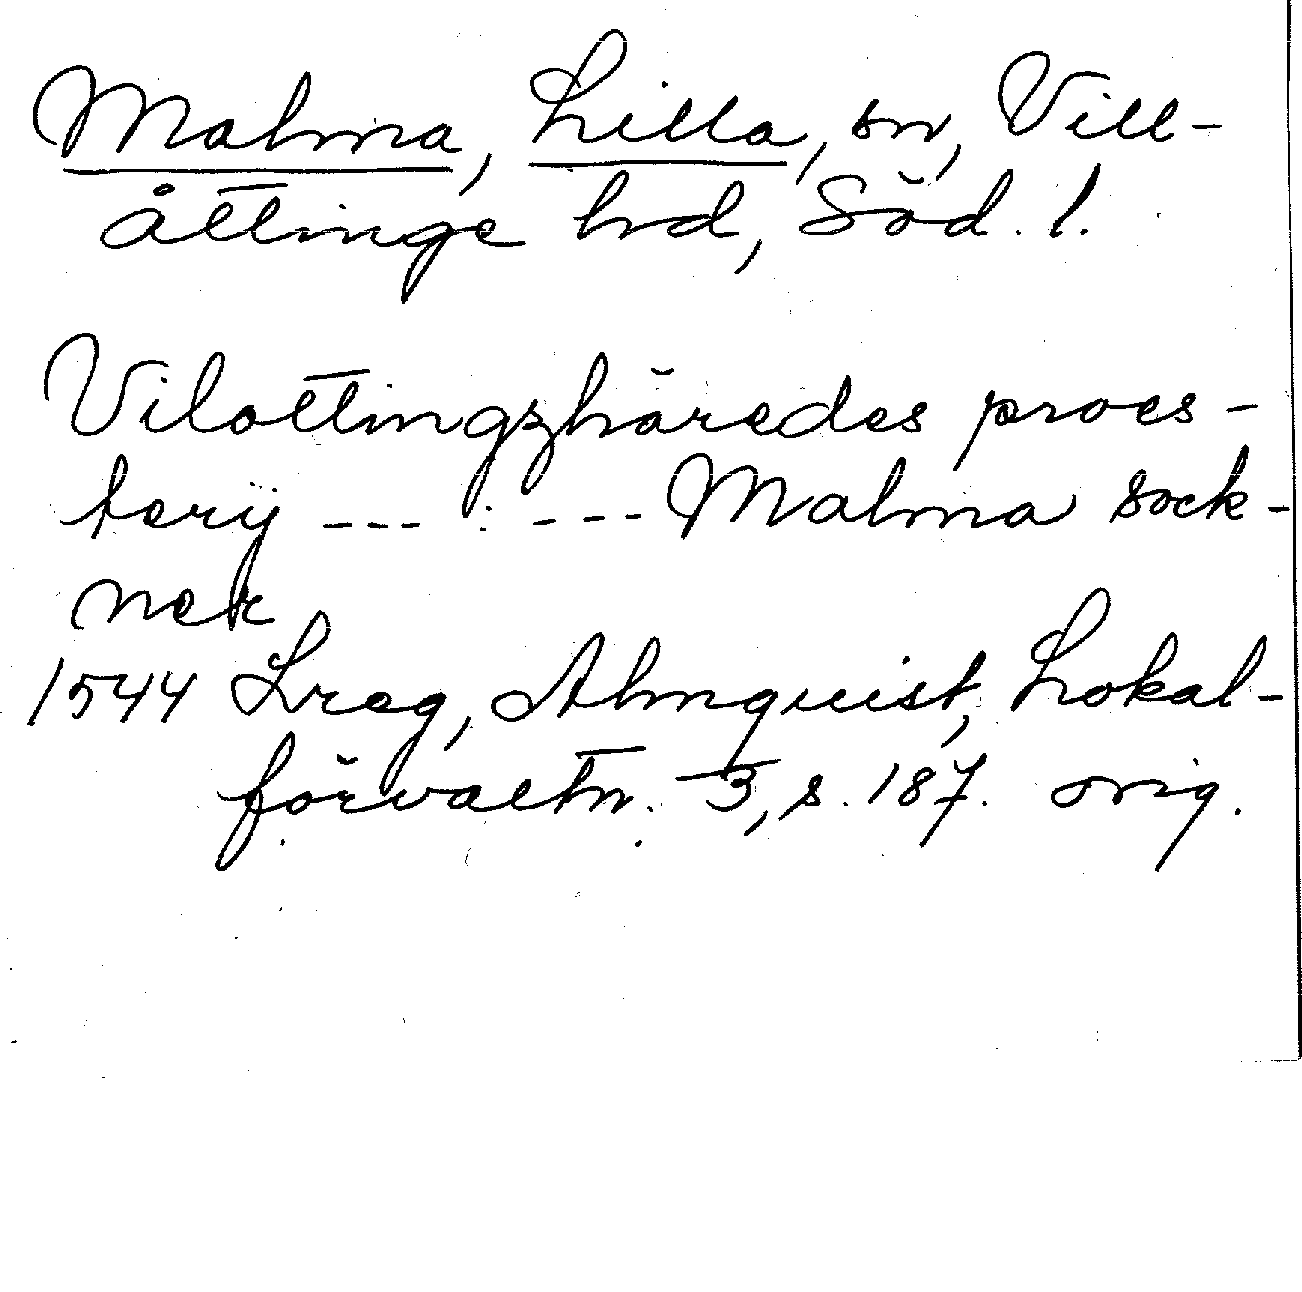 Malma, Lilla, sn, Vill-
åttinge hd, Söd. l.
Vilottingzhäredes proes-
terij --- : --- Malma sock-
ner
1544 Lreg, Almquist, Lokal-
förvaltn. 3, s. 187. orig.